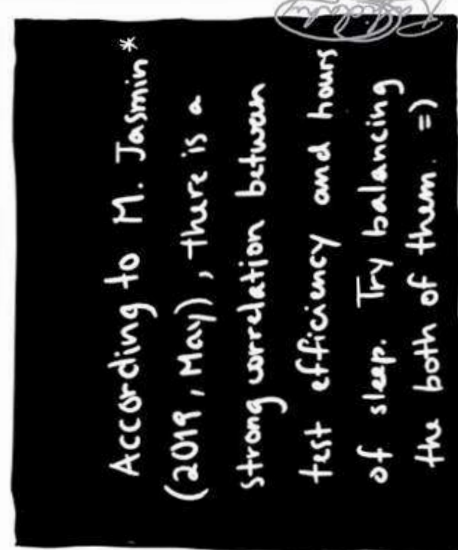 According to M. Jasmin*
(2019, May), there is a
strong correlation betwen
test efficiency and hours
of sleep. Try balancing
the both of them. =)